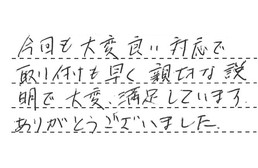 今回も大変良い対応で
取り付けも早く親切な説
明で大変、満足しています.
ありがとうございました.